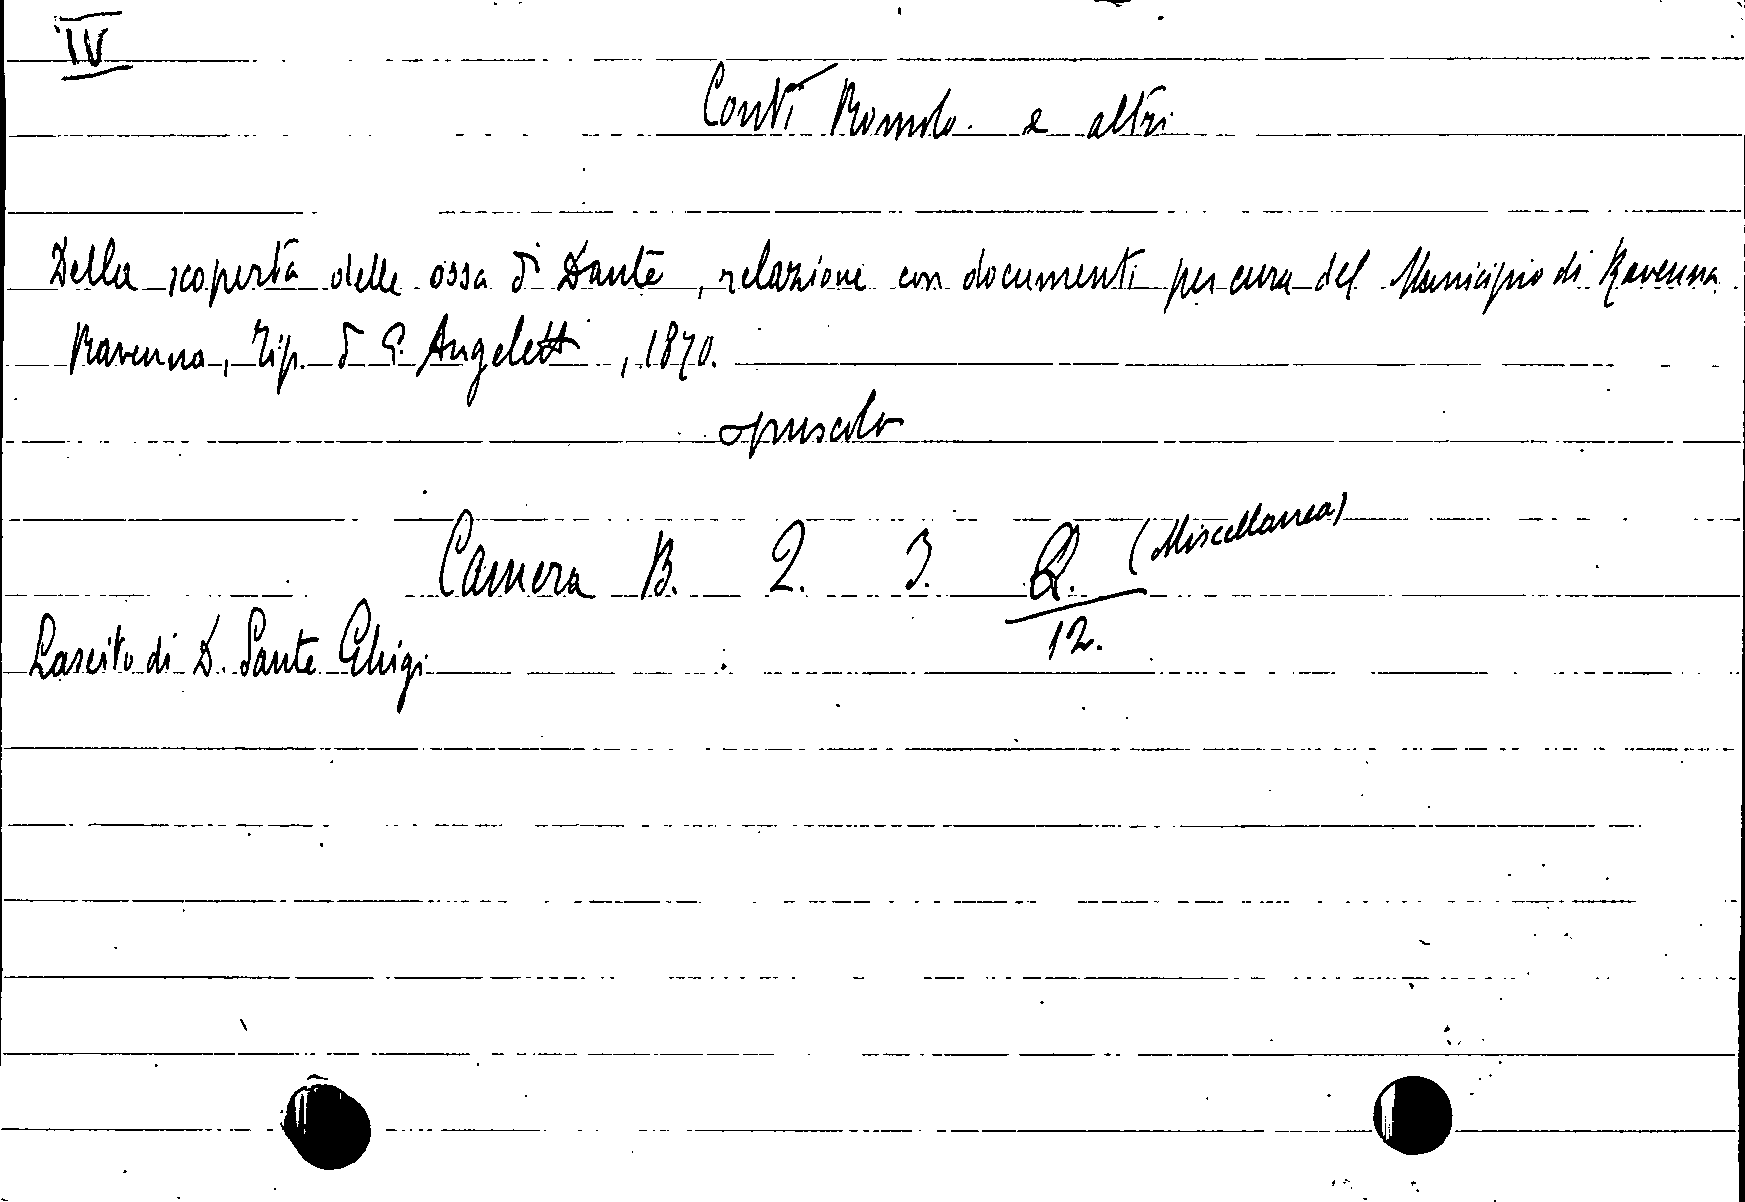 IV
Conti Romolo. e altri
Della scoperta delle ossa di Dante, relazione con documenti per cura del Municipio di Ravenna
Ravenna, Tip. di G. Angeletti, 1870.
opuscolo
Camera B. 2. 3. Q. (Miscellanea)
12.
Lascito di D. Sante Ghigi